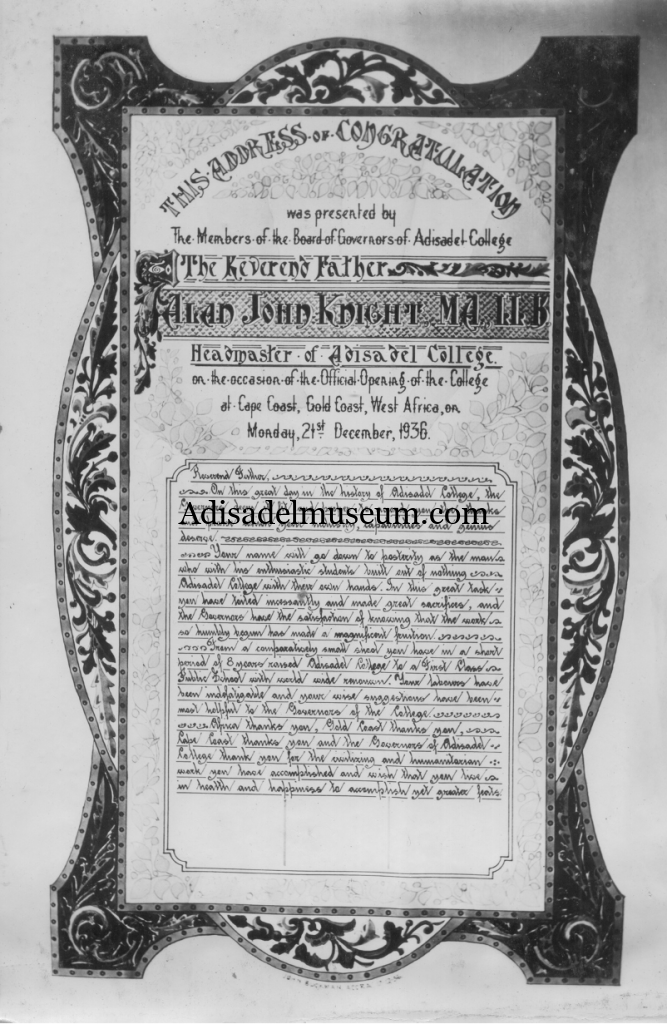 THIS · ADDRESS · OF · CONGRATULATION
was presented by
The · Members · of · the · Board · of · Governors · of · Adisadel · College
The Reverend Father
ALAN JOHN KNIGHT, MA. LL.B
Headmaster · of · Adisadel College.
on · the · occasion · of · the · Official · Opening · of · the · College
at · Cape Coast, Gold Coast, West Africa, on
Monday, 21st December, 1936.
Reverend Father,
On this great day in the history of Adisadel College, the
Adisadelmuseum.com
deserve.
Your name will go down to posterity as the man
who with his enthusiastic students built out of nothing
Adisadel College with their own hands. In this great task
you have toiled incessantly and made great sacrifices, and
the Governors have the satisfaction of knowing that the work
so humbly begun has made a magnificent fruition.
From a comparatively small school you have in a short
period of 8 years raised Adisadel College to a First Class
Public School with world wide renown. Your labours have
been indefatigable and your wise suggestions have been
most helpful to the Governors of the College.
Africa thanks you, Gold Coast thanks you,
Cape Coast thanks you and the Governors of Adisadel
College thank you for the civilizing and humanitarian
work you have accomplished and wish that you live
in health and happiness to accomplish yet greater feats.